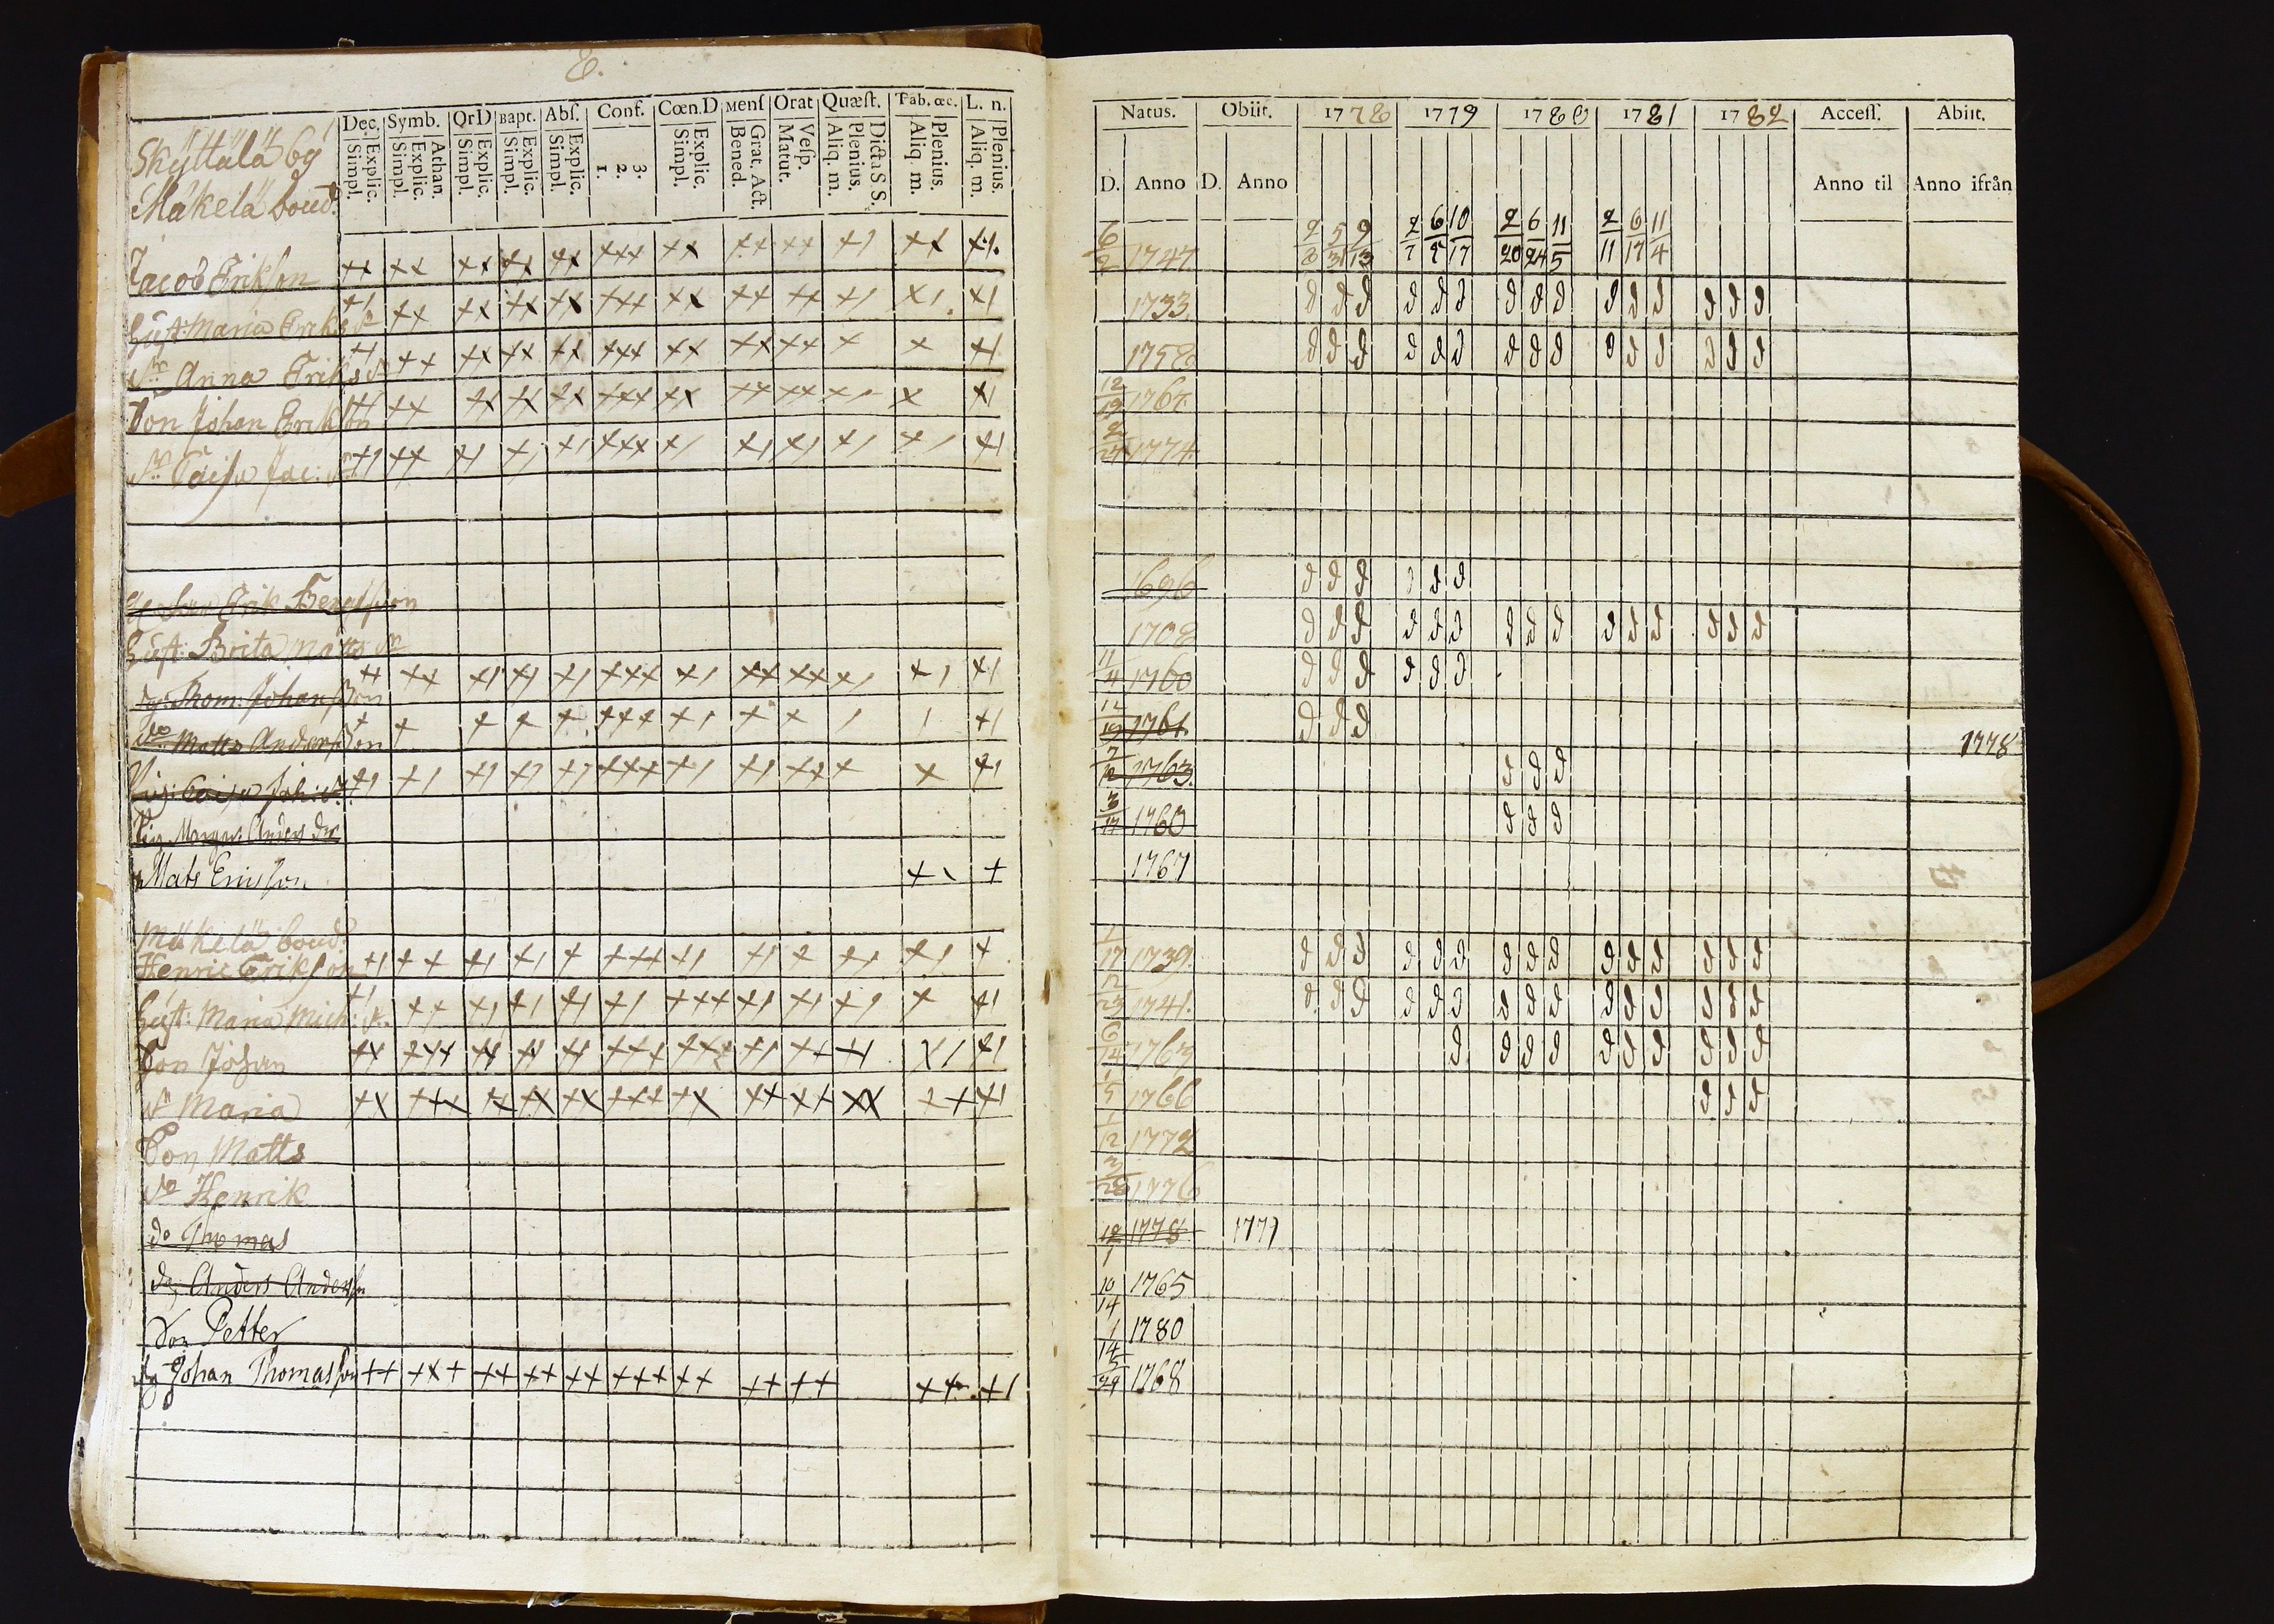 8.
Dec. Symb. QrD Bapt. Abſ. Conf. Cœn.D Menſ Orat Quæſt. Tab. œc. L. n.
Explic. Simpl. Athan. Explic. Simpl. Explic. Simpl. Explic. Simpl. Explic. Simpl. 3. 2. 1. Explic. Simpl. Grat. Act. Bened. Veſp. Matut. Dicta S. S. Plenius. Aliq. m. Plenius. Aliq. m. Plenius. Aliq. m.
Skyttälä by
Mäkelä boud.
Jacob Erikſon
Huſt: Maria Eriks dr
dr Anna Eriks dr
Son Johan Erikſon
dr Caiſa Jac: dr
Erik Bengtſson
Huſt: Brita Matts dr
dg: Thom: Johanſson
do Matts Andersſson
Pig: Caiſa Joh: dr
Pig. Margar: Anders dr
Mats Ericſson
Mäkelä boud.
Henric Erikſon
Huſt: Maria Mich: dr
Son Johan
dr Maria
Son Matts
do Henrik
do Thomas
dg Anders Anderſn
Son Petter
dg Johan Thomasſon
Natus. Obiit. 1778 1779 1780 1781 1782 Acceſſ. Abiit.
D. Anno D. Anno Anno til Anno ifrån
2 5 9 2 6 10 2 6 11 2 6 11
8 31 13 7 7 17 20 24 5 11 17 4
6/2 1747
1733.
1758
12/19 1767
2/24 1774
1696
1708
11/4 1760
12/19 1761 1778
7/12 1763.
3/17 1760
1767
1/17 1739.
12/23 1741.
6/14 1763
1/5 1766
1/12 1772
2/28 1776
12/1 1778 1779
10/14 1765
1/14 1780
5/29 1768